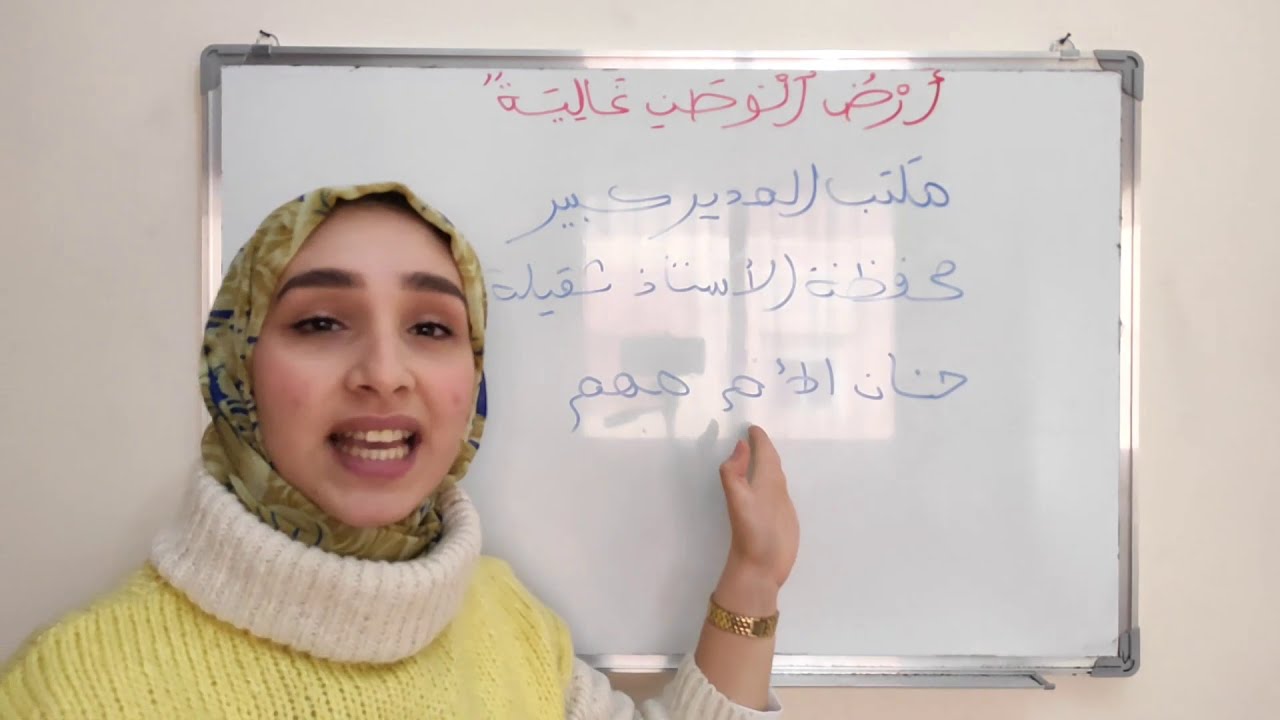 أَرْضُ ٱلْوَطَنِ غَالِيَةٌ"
مَكتب المدير كبير
محفظة الأستاذ ثقيلة
حنان الأم مهم